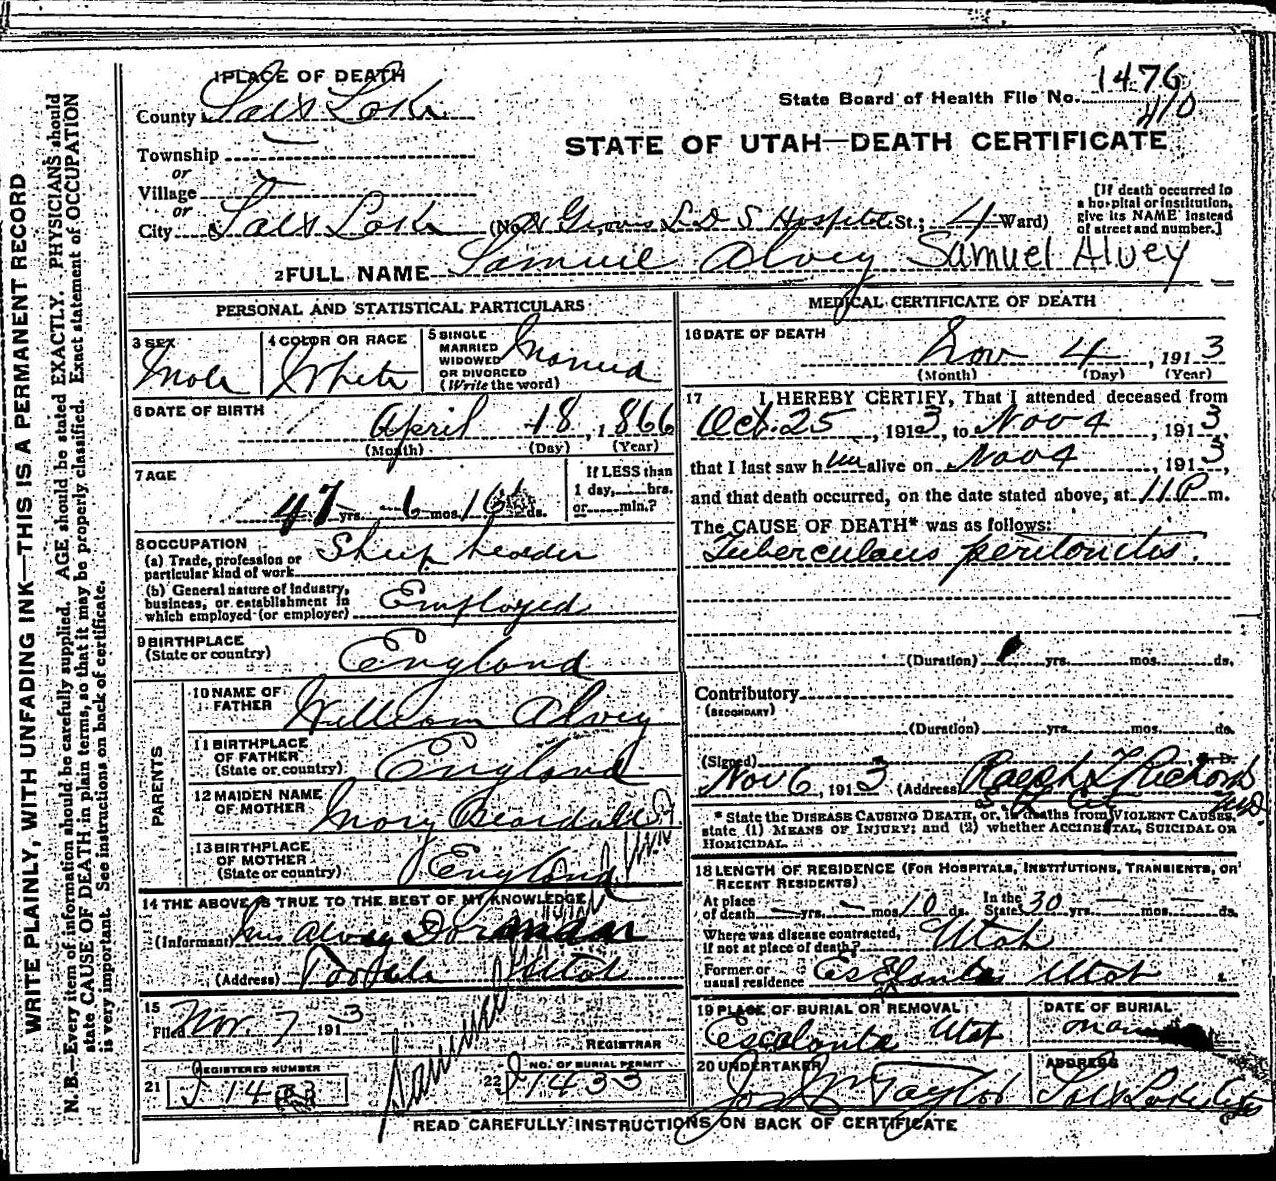 WRITE PLAINLY, WITH UNFADING INK—THIS IS A PERMANENT RECORD
N. B.—Every item of information should be carefully supplied. AGE should be stated EXACTLY. PHYSICIANS should
state CAUSE OF DEATH in plain terms, so that it may be properly classified. Exact statement of OCCUPATION
is very important. See instructions on back of certificate.
1 PLACE OF DEATH
County Salt Lake
Township
or
Village
or
City Salt Lake (No. Groves L D S Hospital St.; 4 Ward)
State Board of Health File No. 1476
410
STATE OF UTAH—DEATH CERTIFICATE
[If death occurred in
a hospital or institution,
give its NAME instead
of street and number.]
2 FULL NAME Samuel Alvey Samuel Alvey
PERSONAL AND STATISTICAL PARTICULARS
3 SEX Male
4 COLOR OR RACE White
5 SINGLE
MARRIED
WIDOWED
OR DIVORCED
(Write the word) Married
6 DATE OF BIRTH
April 18, 1866
(Month) (Day) (Year)
7 AGE
47 yrs. 6 mos. 16 ds.
If LESS than
1 day,.....hrs.
or......min.?
8 OCCUPATION
(a) Trade, profession or
particular kind of work Sheep herder
(b) General nature of industry,
business, or establishment in
which employed (or employer) Employed
9 BIRTHPLACE
(State or country) England
PARENTS
10 NAME OF
FATHER William Alvey
11 BIRTHPLACE
OF FATHER
(State or country) England
12 MAIDEN NAME
OF MOTHER Mary
13 BIRTHPLACE
OF MOTHER
(State or country) England
14 THE ABOVE IS TRUE TO THE BEST OF MY KNOWLEDGE
(Informant) Mrs Alvey
(Address) Utah
15
Filed Nov. 7 1913
REGISTRAR
REGISTERED NUMBER
21
NO. OF BURIAL PERMIT
22 1433
Samuel
MEDICAL CERTIFICATE OF DEATH
16 DATE OF DEATH
Nov 4, 1913
(Month) (Day) (Year)
17 I HEREBY CERTIFY, That I attended deceased from
Oct. 25, 1913, to Nov 4, 1913
that I last saw him alive on Nov 4, 1913,
and that death occurred, on the date stated above, at 11 P m.
The CAUSE OF DEATH* was as follows:
Tuberculous peritonitis.
(Duration) yrs. mos. ds.
Contributory
(SECONDARY)
(Duration) yrs. mos. ds.
(Signed) M. D.
Nov 6, 1913 (Address) Ralph T Richards
S. L. City M.D.
* State the DISEASE CAUSING DEATH, or, in deaths from VIOLENT CAUSES,
state (1) MEANS OF INJURY; and (2) whether ACCIDENTAL, SUICIDAL OR
HOMICIDAL.
18 LENGTH OF RESIDENCE (FOR HOSPITALS, INSTITUTIONS, TRANSIENTS, OR
RECENT RESIDENTS)
At place
of death — yrs. — mos. 10 ds. In the
State 30 yrs. — mos. — ds.
Where was disease contracted,
if not at place of death? Utah
Former or
usual residence Escalante Utah
19 PLACE OF BURIAL OR REMOVAL
Escalante Utah
DATE OF BURIAL
20 UNDERTAKER
Jos Wm Taylor
ADDRESS
Salt Lake City
READ CAREFULLY INSTRUCTIONS ON BACK OF CERTIFICATE